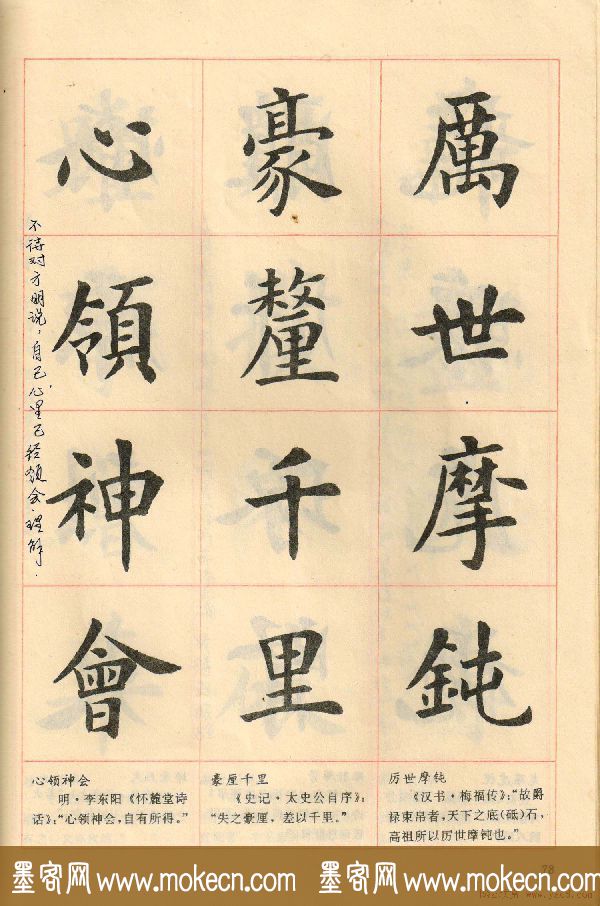 厲世摩鈍
豪釐千里
心領神會
不待对方明说，自己心里已经领会·理解．
心领神会
明·李东阳《怀麓堂诗
话》：“心领神会，自有所得。”
豪厘千里
《史记·太史公自序》：
“失之豪厘，差以千里。”
厉世摩钝
《汉书·梅福传》：“故爵
禄束帛者，天下之底(砥)石，
高祖所以厉世摩钝也。”
78
墨客网-www.mokecn.com 墨客网-www.mokecn.com